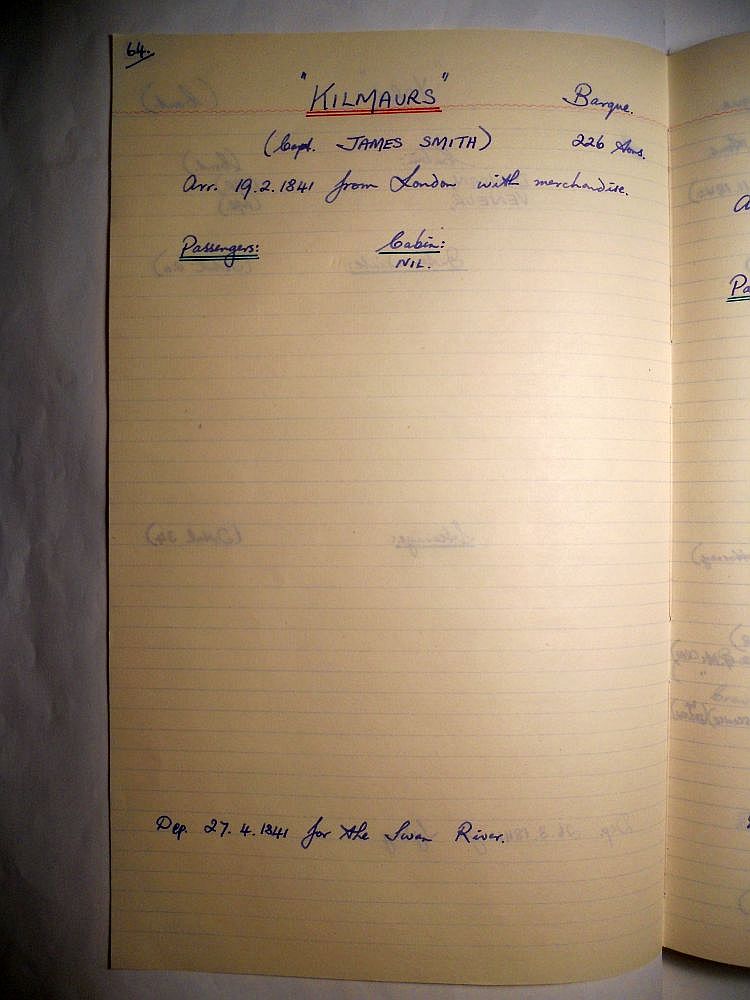 64.
"KILMAURS" Barque.
(Capt. JAMES SMITH) 226 tons.
Arr. 19.2.1841 from London with merchandise.
Passengers: Cabin:
NIL.
Dep. 27.4.1841 for the Swan River.
Pa